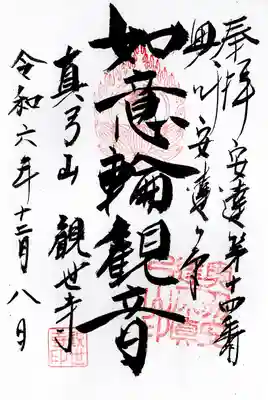 奉拝 安達第十四番
奥州安達ヶ原
如意輪観音
真弓山 観世寺
令和六年十二月八日